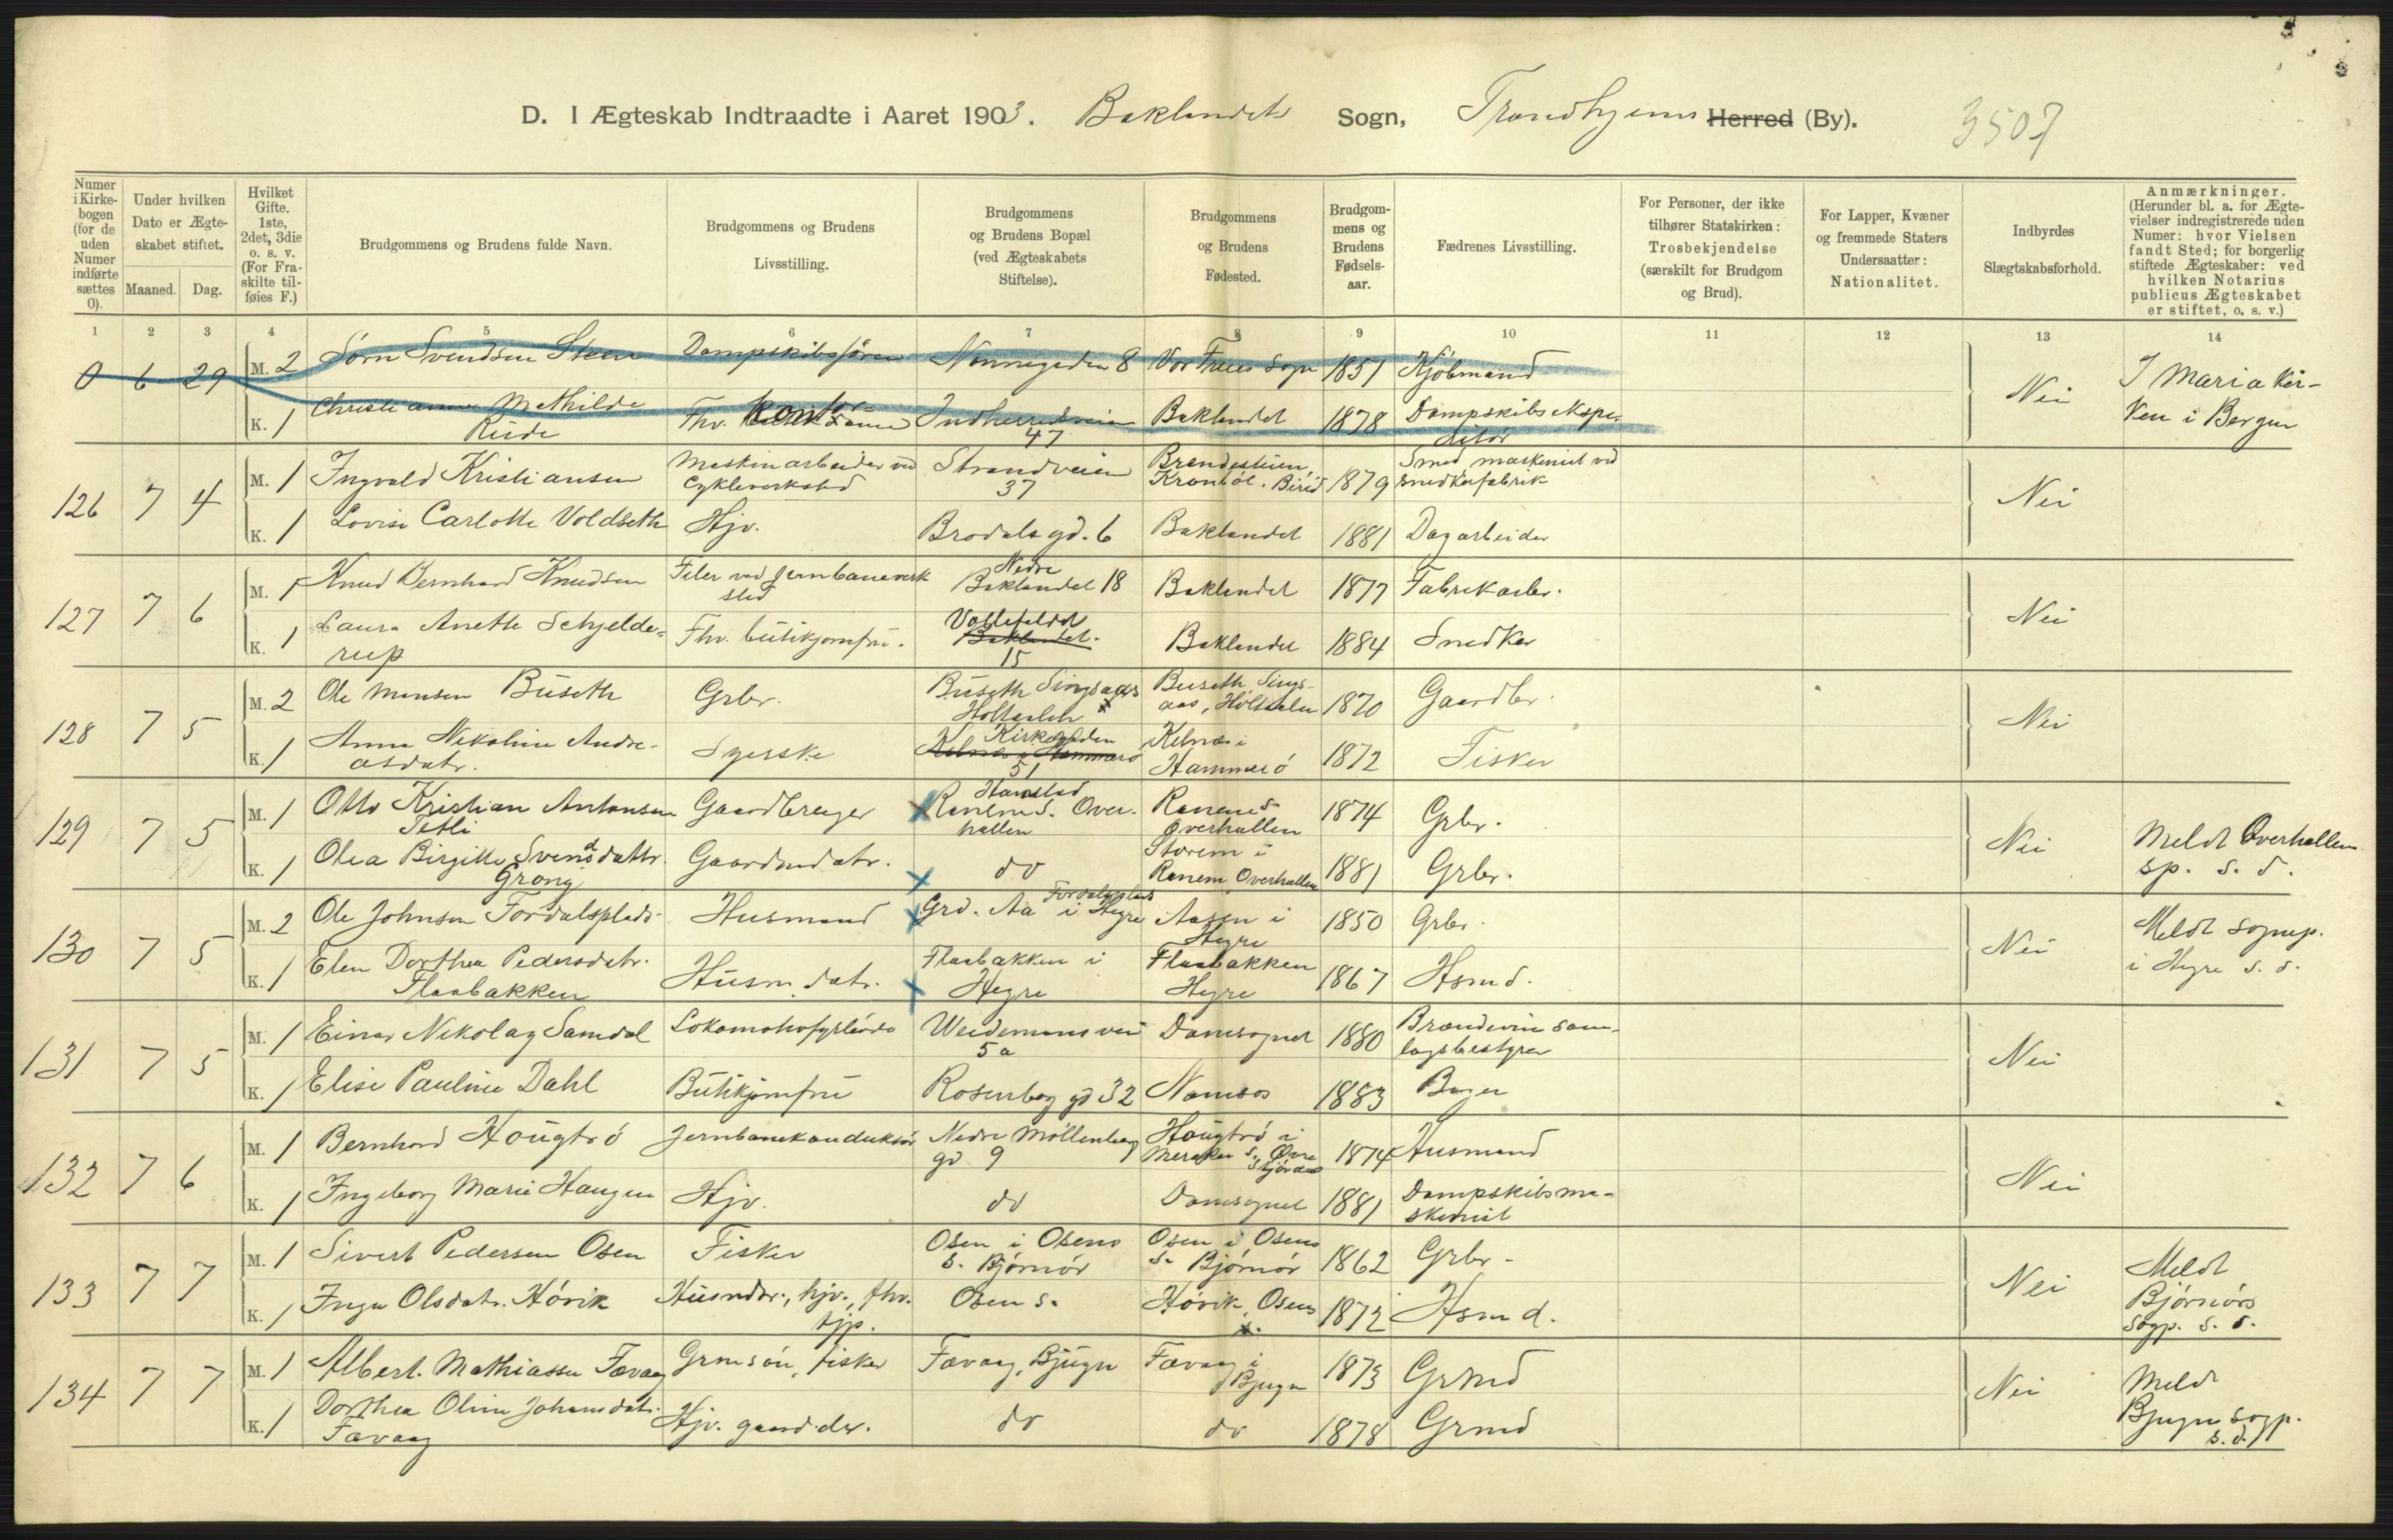 D. I Ægteskab Indtraadte i Aaret 1903. Baklandets Sogn, Trondhjems Herred (By). 3507
Numer i Kirkebogen (for de uden Numer indførte sættes 0).
Under hvilken Dato er Ægteskabet stiftet.
Maaned. Dag.
Hvilket Gifte. 1ste, 2det, 3die o. s. v. (For Fraskilte tilføies F.)
Brudgommens og Brudens fulde Navn.
Brudgommens og Brudens Livsstilling.
Brudgommens og Brudens Bopæl (ved Ægteskabets Stiftelse).
Brudgommens og Brudens Fødested.
Brudgommens og Brudens Fødselsaar.
Fædrenes Livsstilling.
For Personer, der ikke tilhører Statskirken: Trosbekjendelse (særskilt for Brudgom og Brud).
For Lapper, Kvæner og fremmede Staters Undersaatter: Nationalitet.
Indbyrdes Slægtskabsforhold.
Anmærkninger. (Herunder bl. a. for Ægtevielser indregistrerede uden Numer: hvor Vielsen fandt Sted; for borgerlig stiftede Ægteskaber: ved hvilken Notarius publicus Ægteskabet er stiftet, o. s. v.)
1 2 3 4 5 6 7 8 9 10 11 12 13 14
0 6 29 M. 2 Sørn Svendsen Steen Dampskibsfører Nonnegaden 8 Vor Frues Sogn 1851 Kjøbmand Nei I Mariakirken i Bergen
K. 1 Christianne Mathilde Rude Fhv. kontordame Indherredsveien 47 Baklandet 1878 Dampskibsekspeditør
126 7 4 M. 1 Ingvald Kristiansen Maskinarbeider ved Cykleverksted Strandveien 37 Brendestuen, Kronbøl. Birid 1879 Smed, maskenist ved snedkerfabrik Nei
K. 1 Lovise Carlotte Voldseth Hjv. Brodals gd. 6 Baklandet 1881 Dagarbeider
127 7 6 M. 1 Knud Bernhard Knudsen Filer ved jernbaneverksted Nedre Baklandet 18 Baklandet 1877 Fabrikarbr. Nei
K. 1 Laura Anette Schjelderup Fhv. butikjomfru. Voldefeldet Baklandet. 15 Baklandet 1884 Snedker
128 7 5 M. 2 Ole Monsen Buseth Grbr. Buseth Singsaas Holtaalen x Buseth Singsaas, Holtaalen 1870 Gaardbr. Nei
K. 1 Anna Nikoline Andreasdatr. Syerske Kirkegaden 51 Kelnæs i Hammerø 1872 Fisker
129 7 5 M. 1 Otto Kristian Antonsen Tetli Gaardbruger x Ranem s. Overhallen Ranem s. Overhallen 1874 Grbr. Nei Meldt Overhallen sp. s. d.
K. 1 Olea Birgitte Svendsdattr. Grong Gaardmdatr. x do Storem i Ranem Overhallen 1881 Grbr.
130 7 5 M. 2 Ole Johnsen Fordalsplads Husmand x Grd. Aa Fordalsplads i Hegre Aasen i Hegre 1850 Grbr. Nei Meldt sognep. i Hegre s. d.
K. 1 Elen Dorthea Pedersdatr. Flaabakken Husm. datr. x Flaabakken i Hegre Flaabakken Hegre 1867 Hsmd.
131 7 5 M. 1 Einar Nikolay Samdal Lokomotivfyrbøder Weidemansvei 5a Domsognet 1880 Brændevinsamlagsbestyrer Nei
K. 1 Elise Pauline Dahl Butikjomfru Rosenborg gd 32 Namsos 1883 Bager
132 7 6 M. 1 Bernhard Hougtrø Jernbanekonduktør Nedre Møllenberg gd 9 Hougtrø i Meraker s. Øvre Stjørdal 1874 Husmand Nei
K. 1 Ingeborg Marie Haugen Hjv. do Domsognet 1881 Dampskibsmaskenist
133 7 7 M. 1 Sivert Pedersen Osen Fisker Osen i Osens s. Bjørnør Osen i Osens s. Bjørnør 1862 Grbr. Nei Meldt Bjørnørs sogp. s. d.
K. 1 Inga Olsdatr. Høvik Husmdr., hjv., fhv. tjp. Osen s. Høvik, Osens s. 1872 Hsmd.
134 7 7 M. 1 Albert Mathiassen Favaag Grmsøn, fisker Favaag, Bjugn Favaag i Bjugn 1873 Grmd Nei Meldt Bjugn sogp. s. d.
K. 1 Dorthea Oline Johansdatr. Favaag Hjv. gaard.dr. do do 1878 Grmd